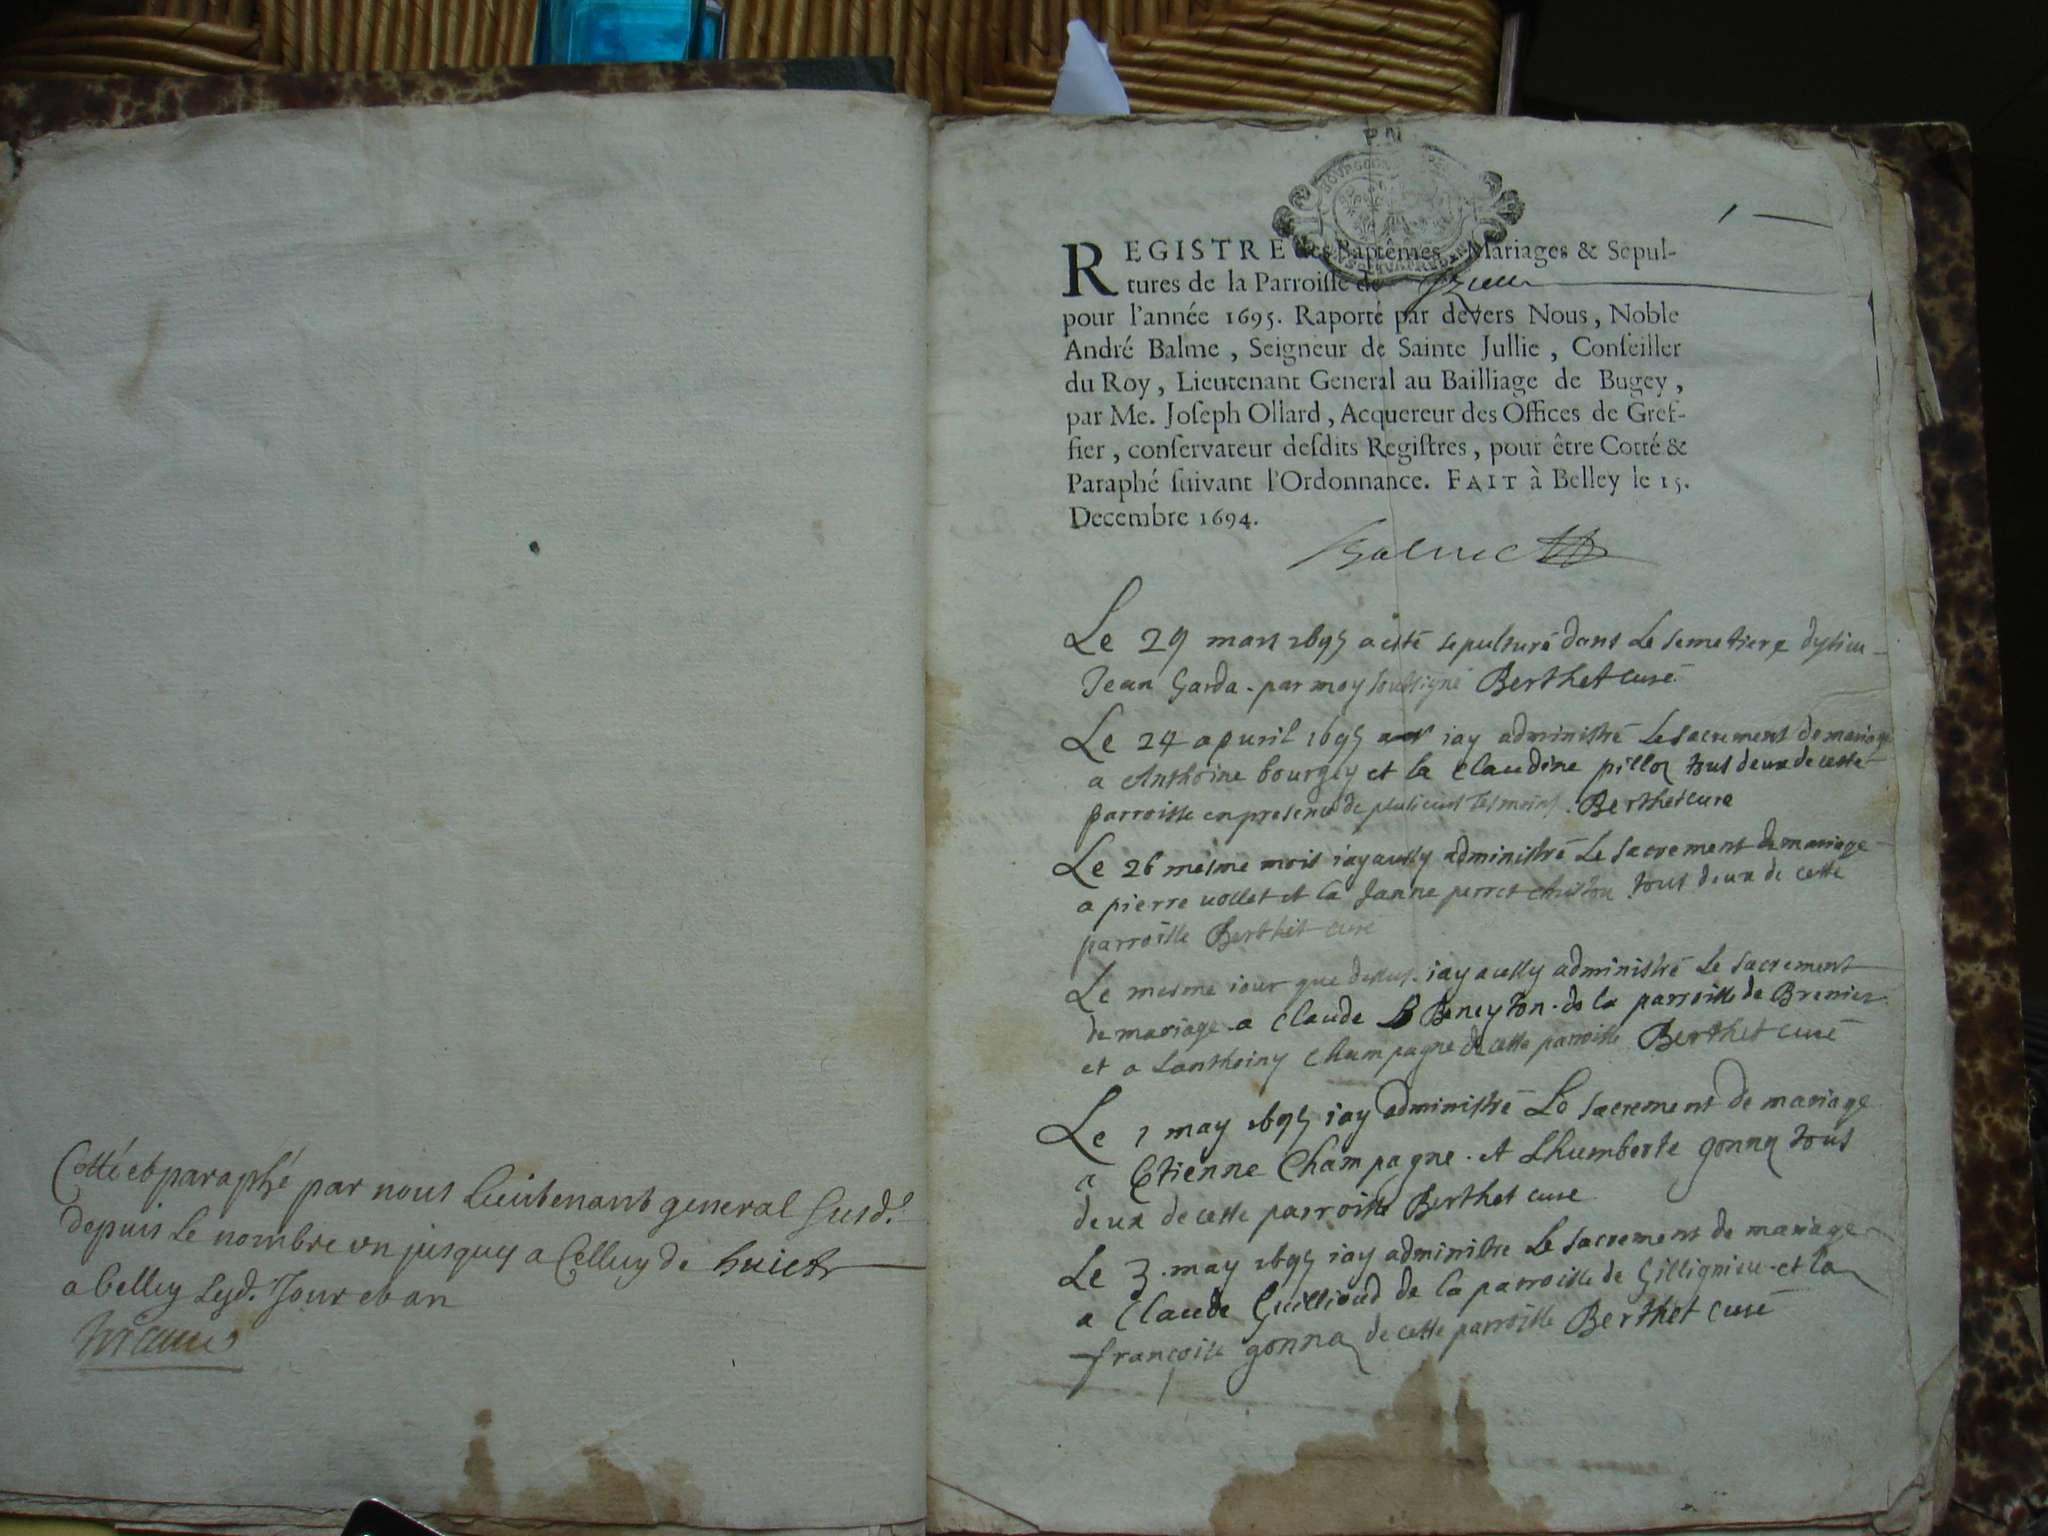 Cotté et paraphé par nous Lieutenant general susd.
depuis le nombre un jusques a Celluy de huict
a belley led. Jour et an
REGISTRE des Baptêmes, Mariages & Sepul-
tures de la Parroisse de
pour l'année 1695. Raporté par devers Nous, Noble
André Balme, Seigneur de Sainte Jullie, Conseiller
du Roy, Lieutenant General au Bailliage de Bugey,
par Me. Joseph Ollard, Acquereur des Offices de Gref-
fier, conservateur desdits Registres, pour être Cotté &
Paraphé suivant l'Ordonnance. FAIT à Belley le 15.
Decembre 1694.
Balme
Le 29 mars 1695 a esté sepulturé dans le semetiere
Jean Garda . par moy soussigné Berthet curé
Le 24 apuril 1695 iay administré le sacrement de mariage
a Anthoine bourgey et la Claudine pilloz tous deux de ceste
parroisse en presence de plusieurs tesmoins . Berthet curé
Le 26 mesme mois iay aussy administré le sacrement de mariage
a pierre vollet et la Janne perret tous deux de cette
parroisse Berthet curé
Le mesme iour que dessus . iay aussy administré le sacrement
de mariage a Claude Beneyton . de la parroisse de Brenier
et a Champagne de cette parroisse Berthet curé
Le 1 may 1695 iay administré Le sacrement de mariage
a Etienne Champagne . et Lhumberte gonna tous
deux de cette parroisse Berthet curé
Le 3 . may 1695 iay administre le sacrement de mariage
a Claude Guillioud de la parroisse de Gillignieu . et la
francoise gonna de cette parroisse Berthet curé